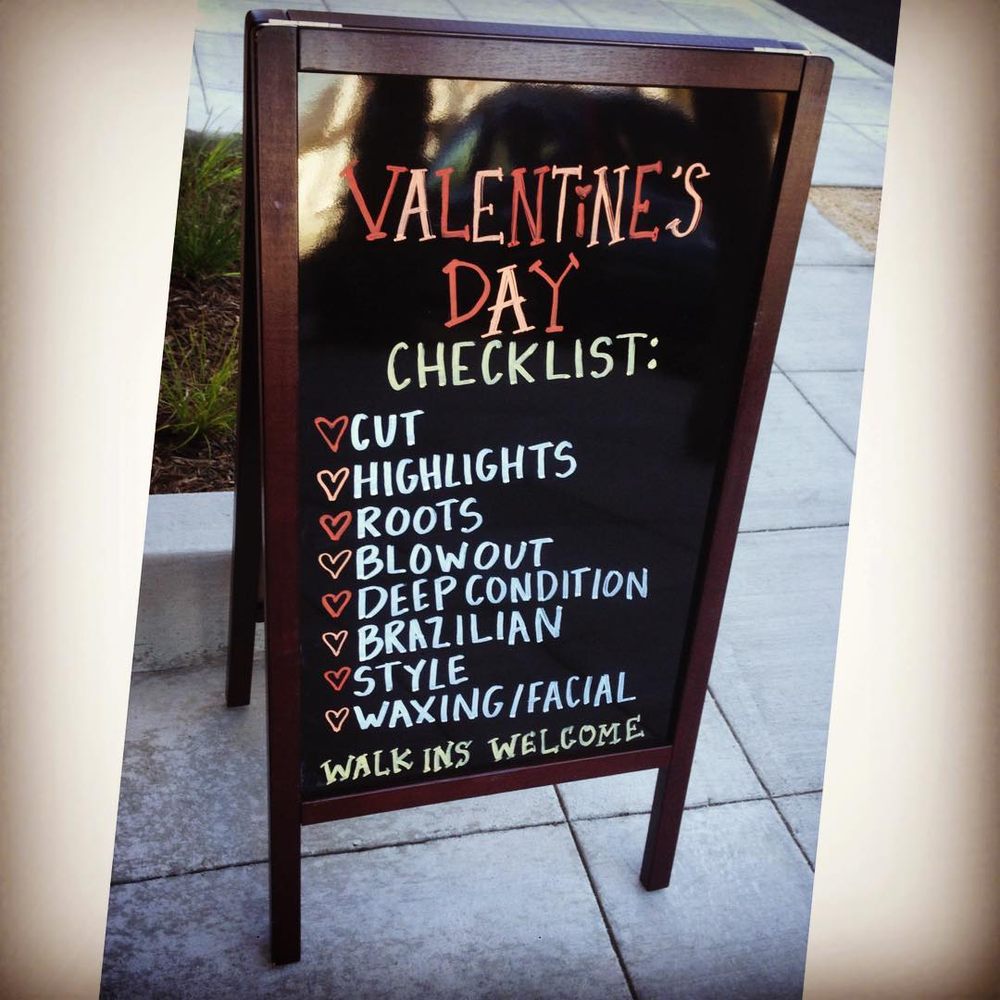 VALENTINE'S
DAY
CHECKLIST:
♡CUT
♡HIGHLIGHTS
♡ROOTS
♡BLOWOUT
♡DEEP CONDITION
♡BRAZILIAN
♡STYLE
♡WAXING/FACIAL
WALK INS WELCOME